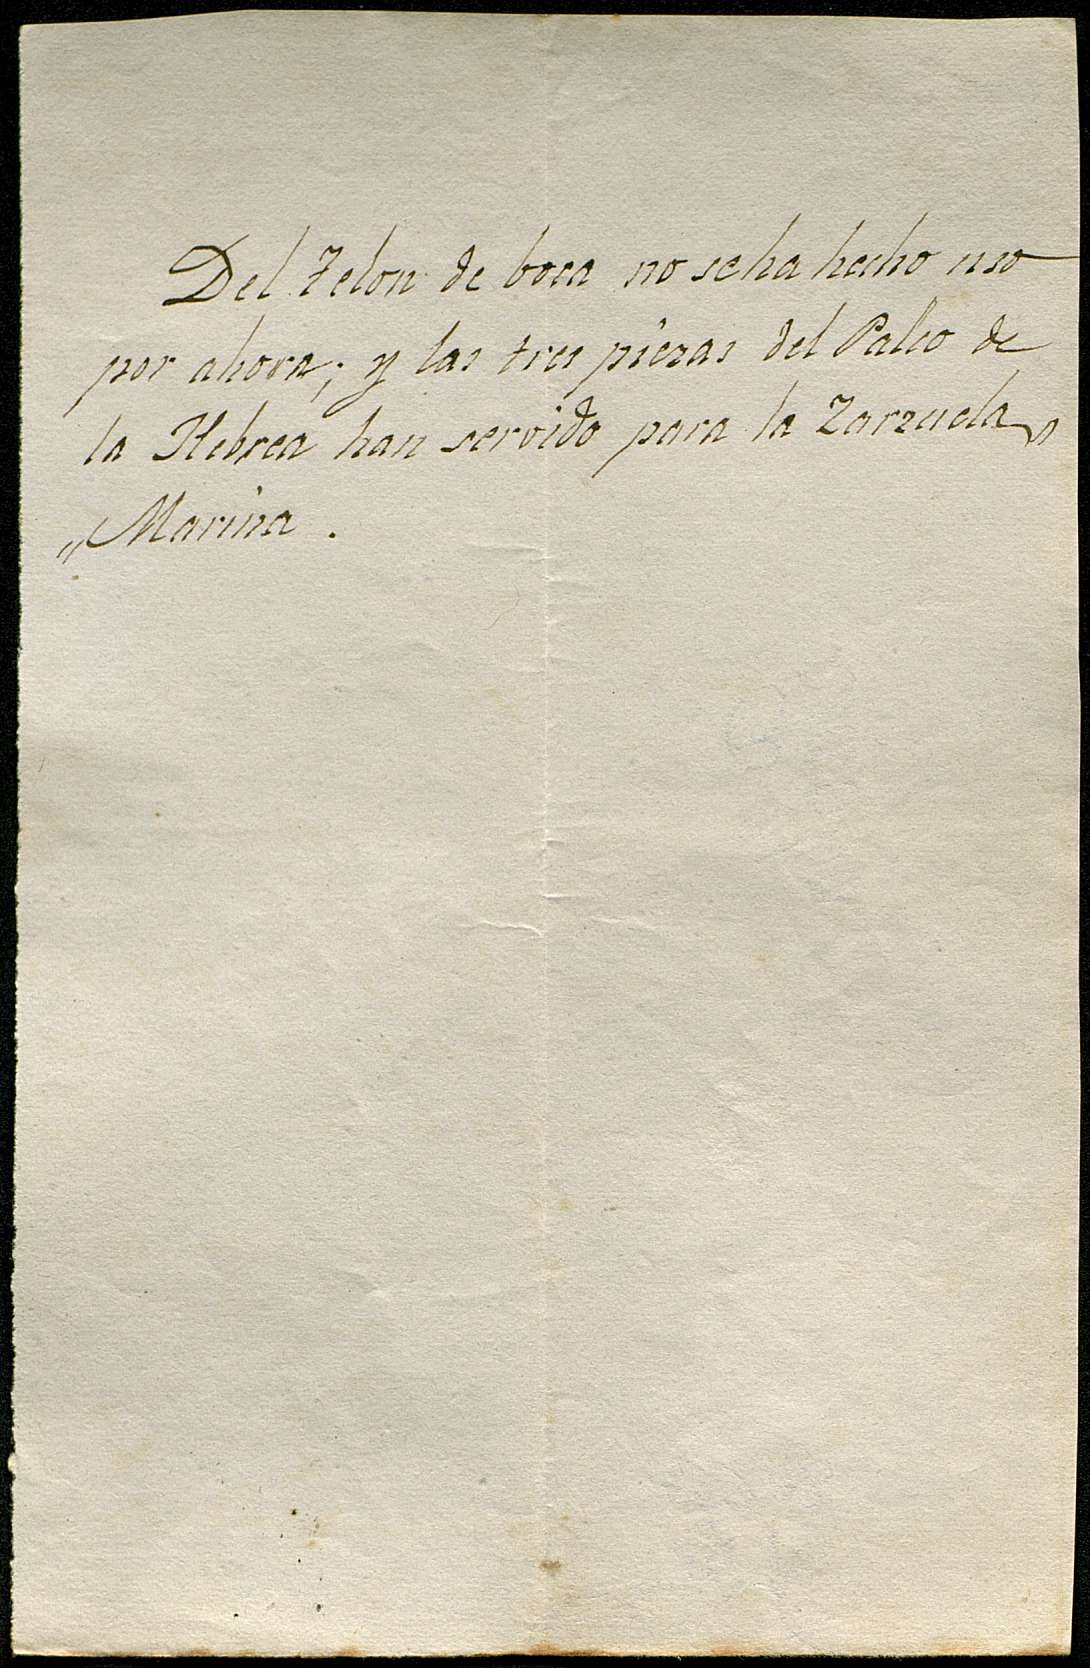 Del Telon de boca no se ha hecho uso
por ahora; y las tres piezas del Palco de
la Hebrea han servido para la Zarzuela „
„ Marina .